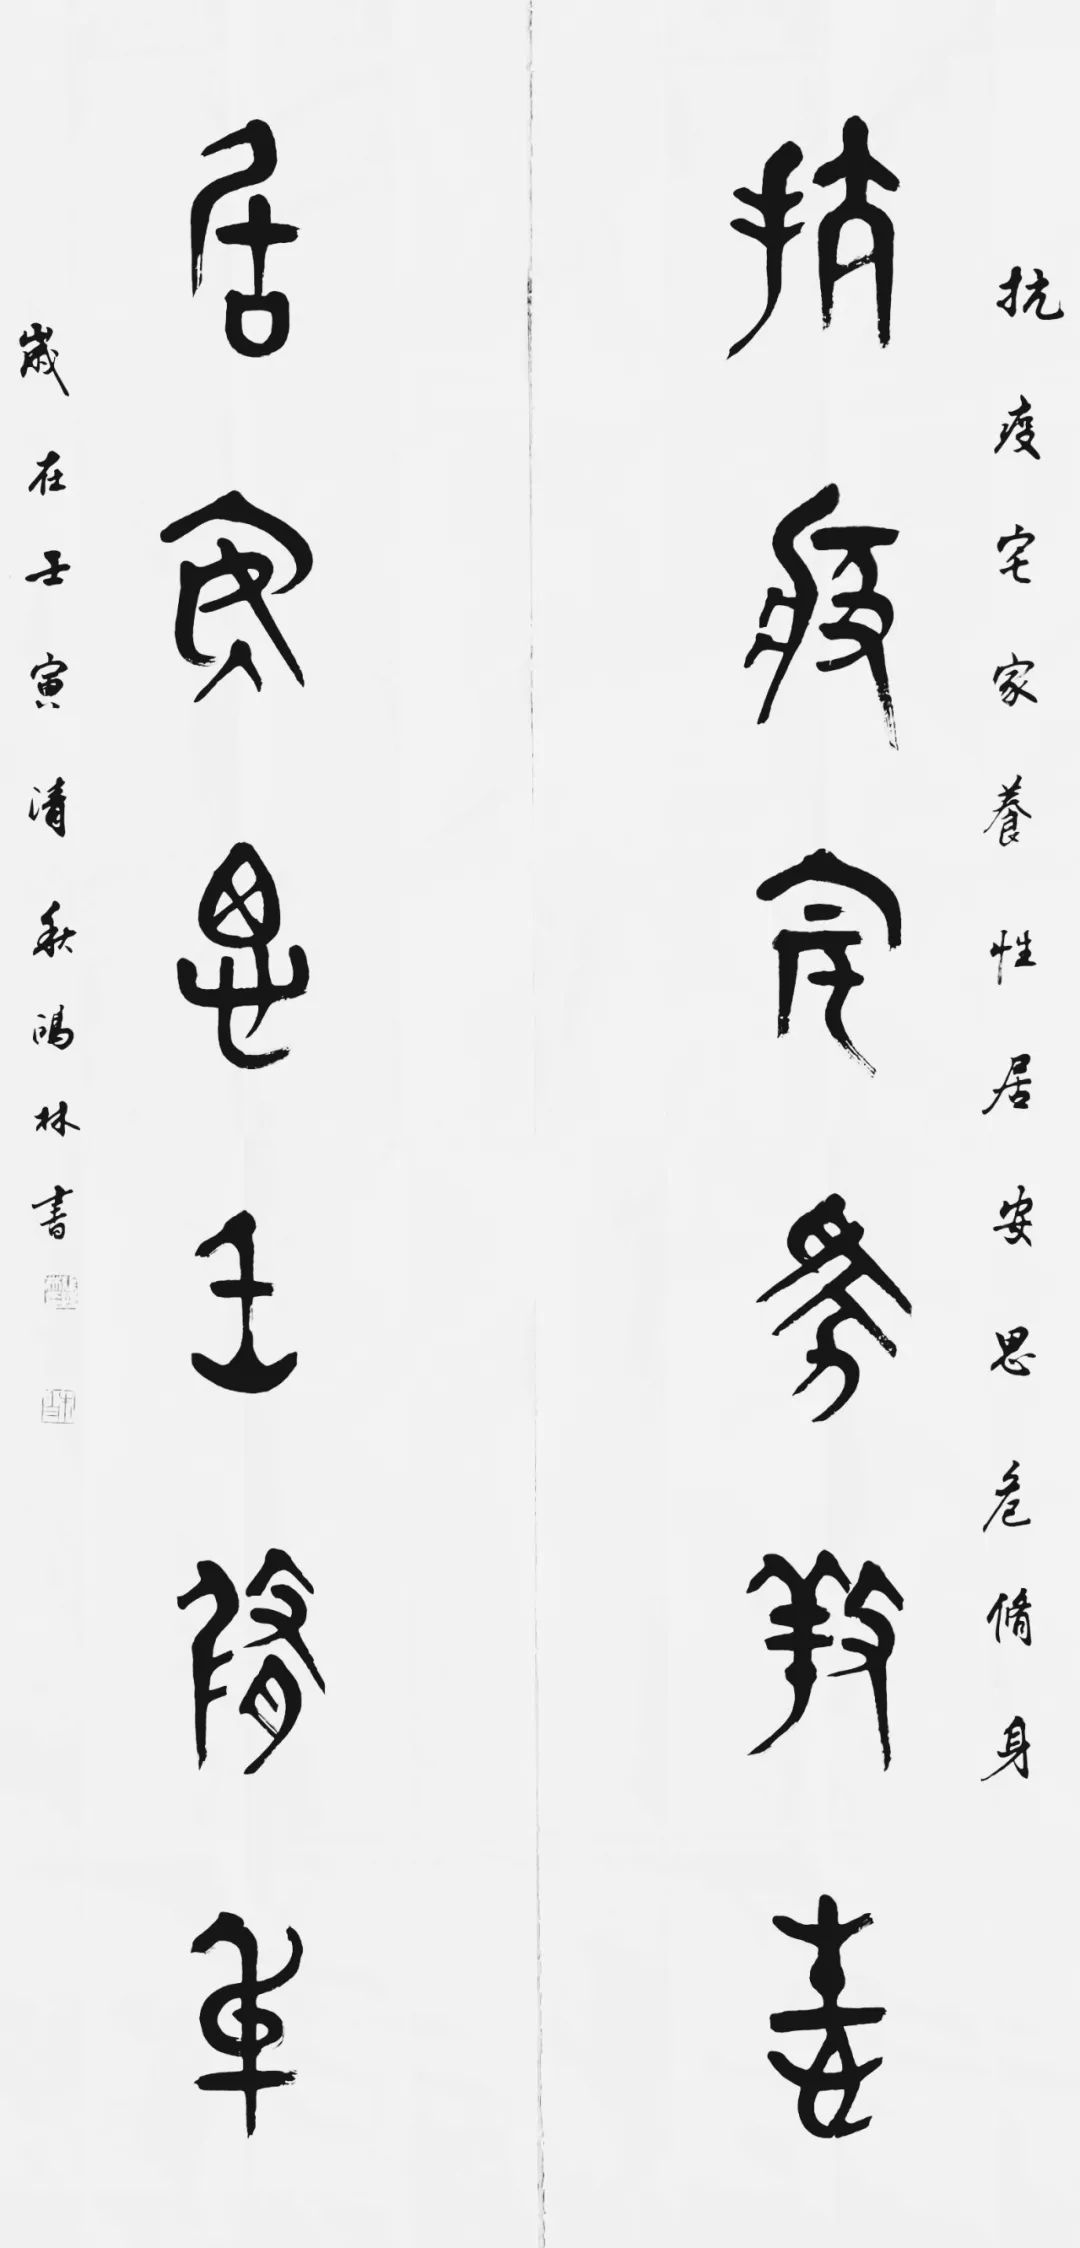 抗疫宅家養性
抗疫宅家養性居安思危脩身
居安思危脩身
歲在壬寅清秋鴻林書